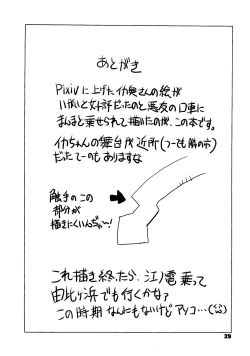 あとがき
Pixivに上げたイカ娘さんの絵が
いがいと好評だったのと悪友の口車に
まんまと乗せられて描いたのが、この本です。
イカちゃんの舞台が近所(つーても隣の市)
だったてーのもありますな
触手のこの
部分が
描きにくいんぢゃ〜!
これ描き終たら、江ノ電乗って
由比ヶ浜でも行くかな?
この時期なんにもないけどアソコ…
29